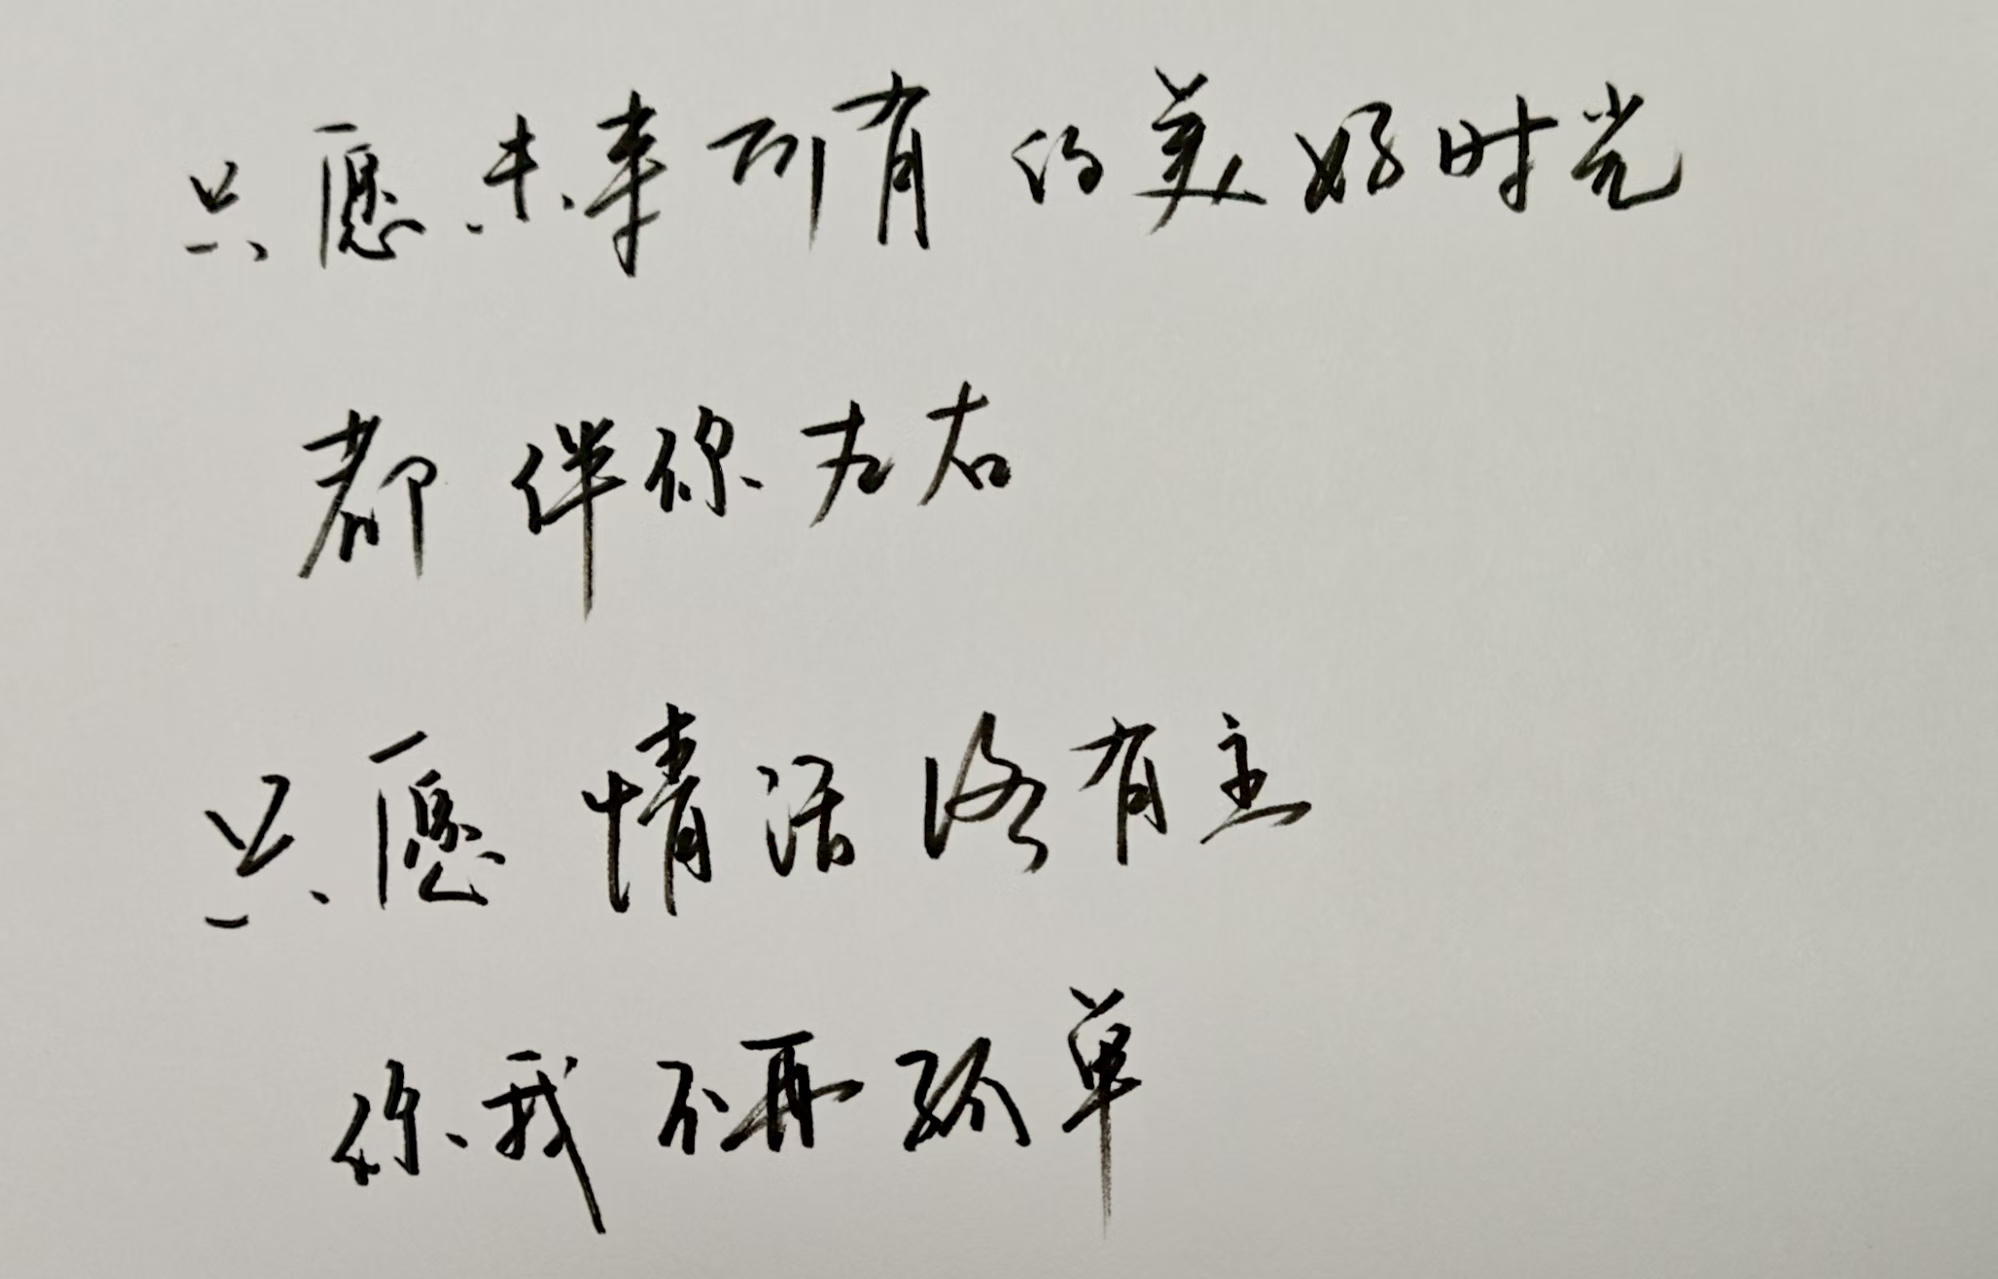 只愿未来所有的美好时光
都伴你左右
只愿情话终有主
你我不再孤单